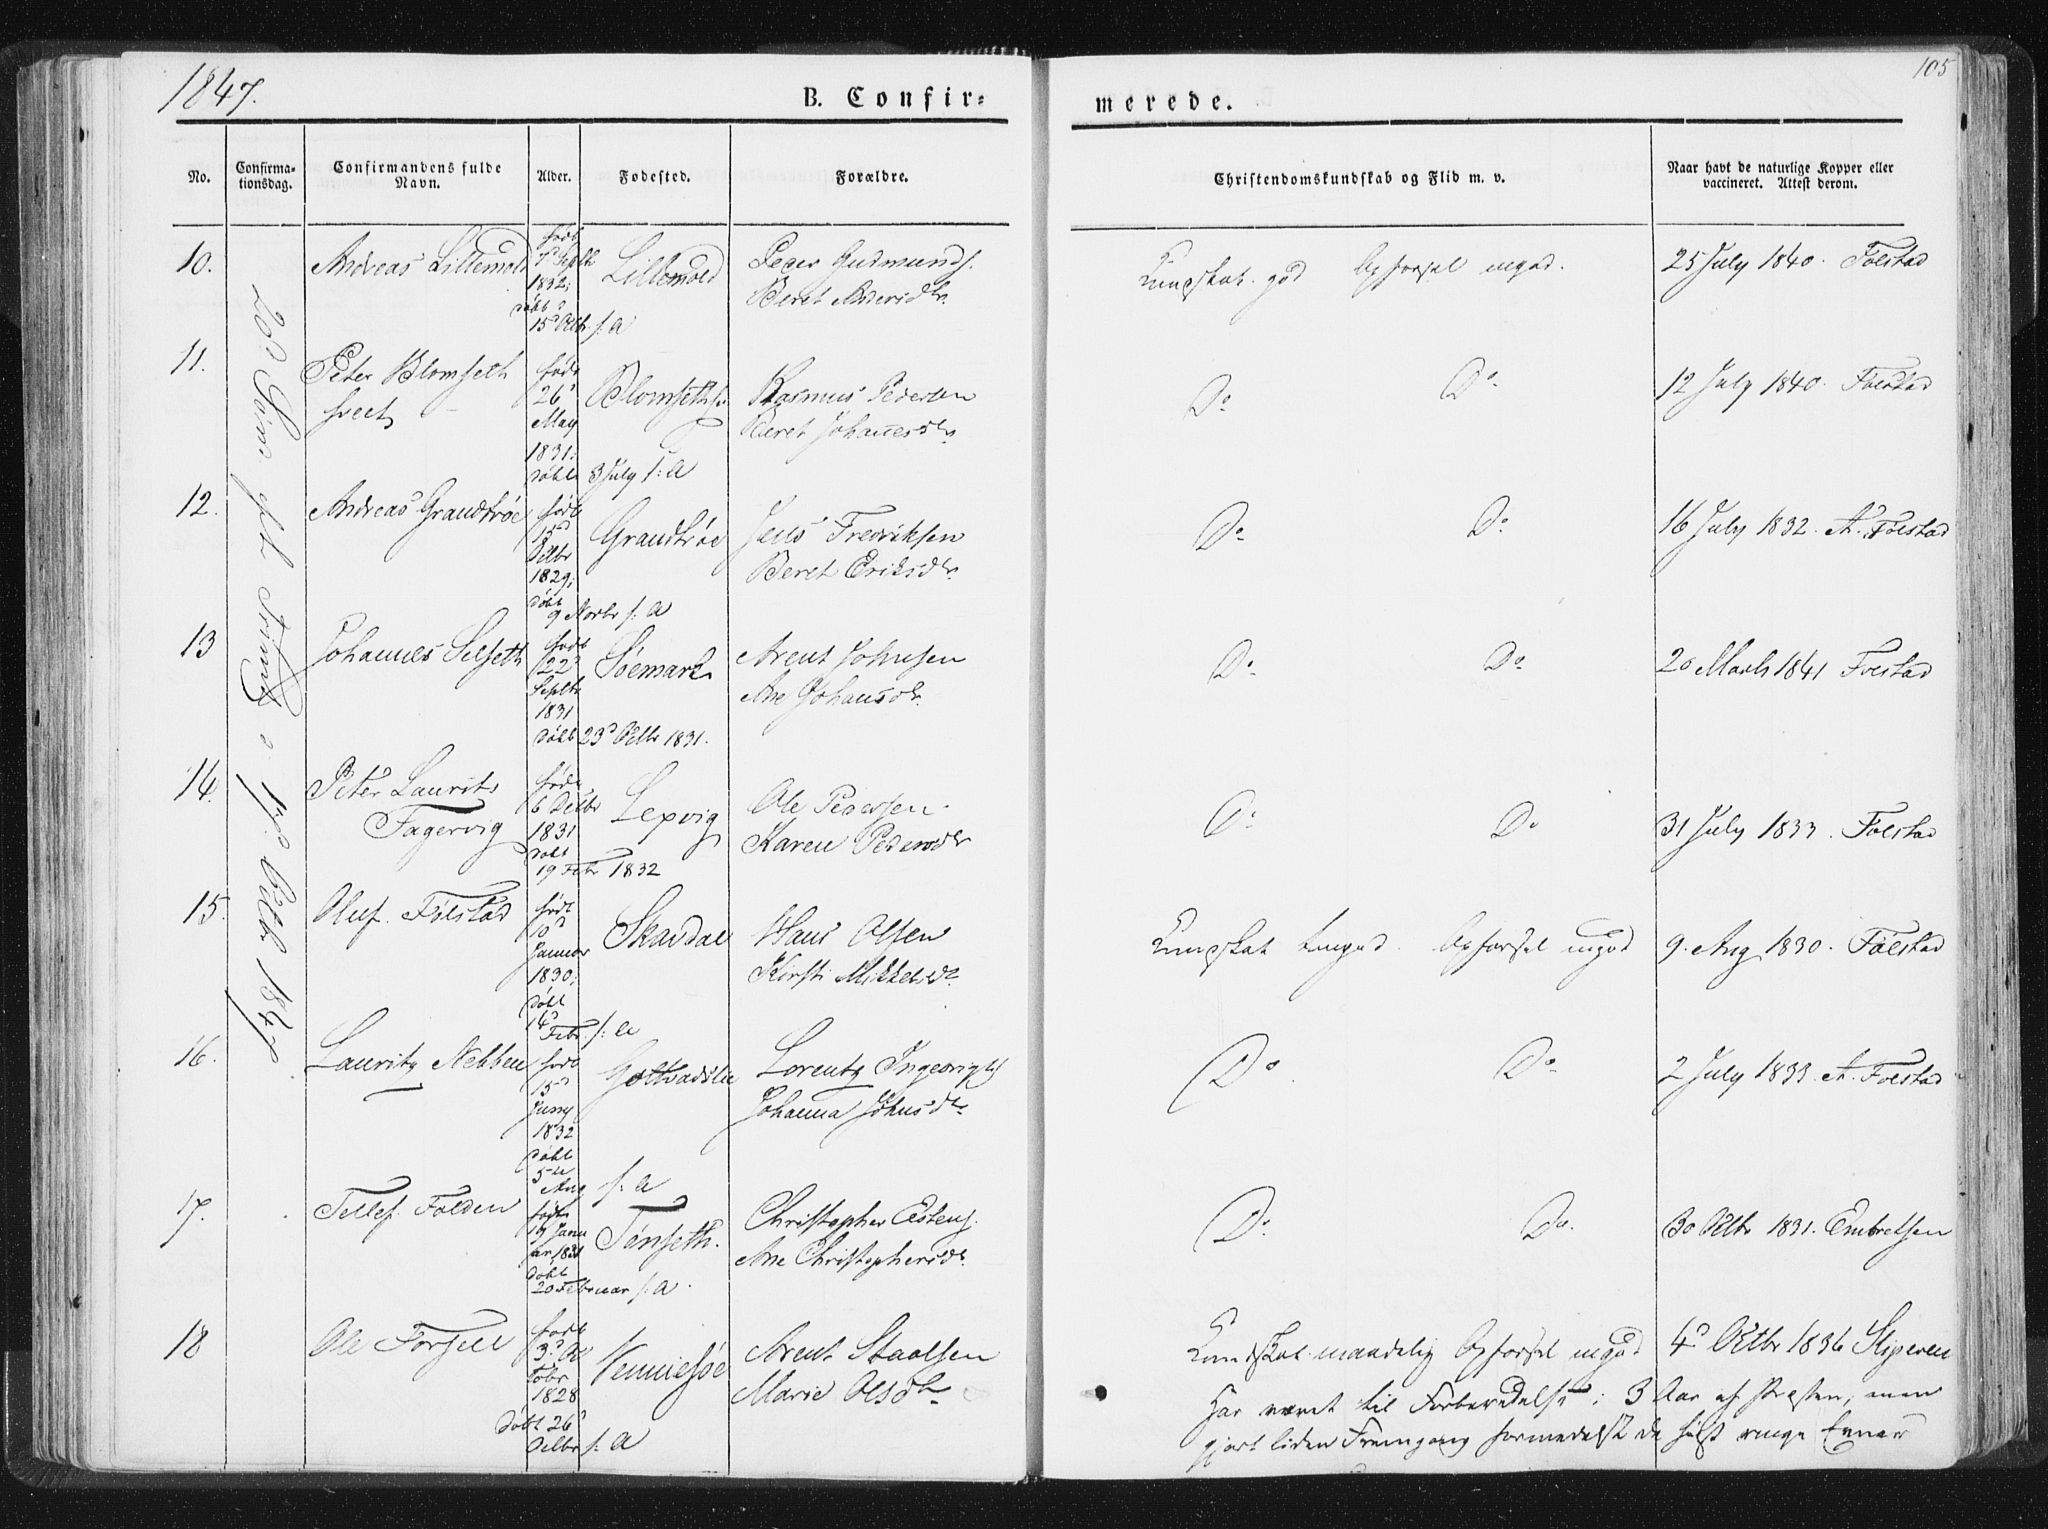 1847.
B. Confir=
merede.
105
No.
Confirma-
tionsdag.
Confirmandens fulde
Navn.
Alder.
Fødested.
Forældre.
Christendomskundskab og Flid m. v.
Naar havt de naturlige Kopper eller
vaccineret. Attest derom.
1847
10.
Andreas Lillemold
født
7d Septbr
1832;
døbt
15d Octbr s: A
Lillemold
Peder Gudmunds.
Beret Anders dr.
Kundskab. god Opførsel mgod.
25 July 1840. Folstad
11.
Peter Blomseth
født
26d
May
1831:
døbt 3 July s: A
Rasmus Pedersen
Beret Johannesdr.
Do
Do
12 July 1840. Folstad
12.
Andreas Grandtrøe
født
15d
Octbr
1829;
døbt
9 Novbr s: A
Grandtrøe
Jens Fredriksen
Beret Eriksdr.
Do
Do
16 July 1832. A. Folstad
13
Johannes Selseth
født
22d
Septbr
1831
døbt 23d Octbr 1831.
Søemark
Arent Johnsen
Ane Johansdr.
Do
Do
20 Marts 1841 Folstad
14.
Peter Laurits
Fagervig
født
6 Octbr
1831
døbt
19 Febr 1832
Lexvig
Ole Pedersen
Karen Pedersdr
Do
Do
31 July 1833. Folstad
15.
Oluf Folstad
født
10d
Januar
1830;
døbt
14d
Febr. s: A
Skavdal
Hans Olsen
Kirsti Mikkelsdr.
Kundskab temgod. Opførsel mgod
9. Aug 1830. Folstad
16.
Lauritz Nebben
født
15d
Juny
1832
døbt
5te
Aug s: A
Lorentz Ingebrigts
Johanna Johnsdr.
Do.
Do
2 July 1833. A. Folstad
17.
Tellef Folden
født
Janu
ar 1831
døbt
20 Februar s: A.
Tønseth.
Christopher Estens.
Ane Christophersdr.
Do.
Do.
30 Octbr 1831. Embretsen
18
Ole Forsell
født
3d Oc
tobr
1828
døbt 26d
Octbr s: A
Vennesøe
Arent Staalsen
Marie Olsdr
Kundskab maadelig Opførsel mgod
4d Octbr 1836
Har været til Forberedelse i 3 Aar af Præsten, men
gjort liden Fremgang formedelst de højst ringe Evner